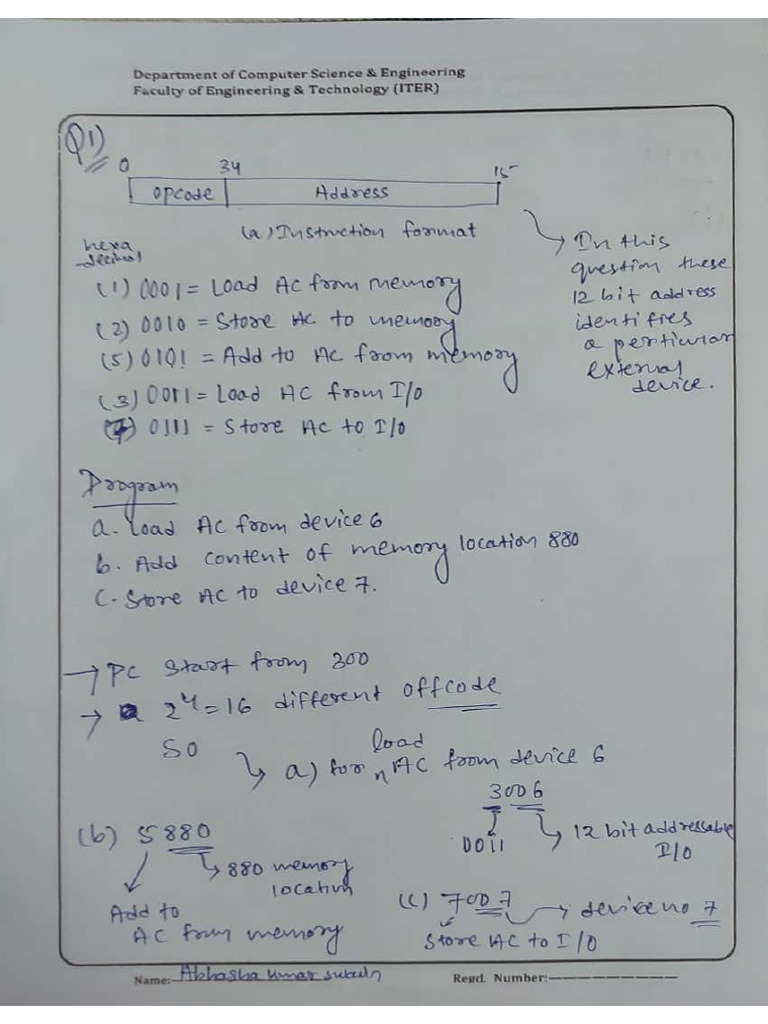 Department of Computer Science & Engineering
Faculty of Engineering & Technology (ITER)
Q1)
0 34 15
opcode Address
(a) Instruction format
hexa
decimal
(1) 0001 = Load AC from memory
(2) 0010 = Store AC to memory
(5) 0101 = Add to AC from memory
(3) 0011 = Load AC from I/O
(7) 0111 = Store AC to I/O
→ In this
question these
12 bit address
identifies
a perticular
external
device.
Program
a. Load AC from device 6
b. Add content of memory location 880
C. Store AC to device 7.
→ PC start from 300
→ 2⁴ = 16 different offcode
SO
load
a) for AC from device 6
3006
0011
12 bit addressable
I/O
(b) 5880
880 memory
location
Add to
AC from memory
(c) 7007
→ device no 7
Store AC to I/O
Name: Kumar
Regd. Number: